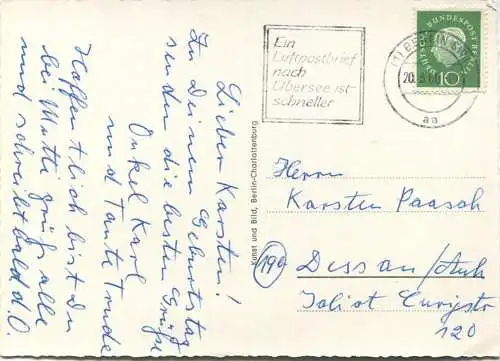 Lieber Karsten!
Zu Deinem Geburtstag
senden die besten Grüße
Onkel Karl
und Tante Trude
Hoffentlich bist Du
bei Mutti grüß alle
und schreibt bald d.O
Kunst und Bild, Berlin-Charlottenburg
Ein
Luftpostbrief
nach
Übersee ist
schneller
(1) BERLIN
20.
aa
DEUTSCHE BUNDESPOST BERLIN
10
Herrn
Karsten Paasch
(19b)
Dessau/Anh
Joliot Curiestr
120